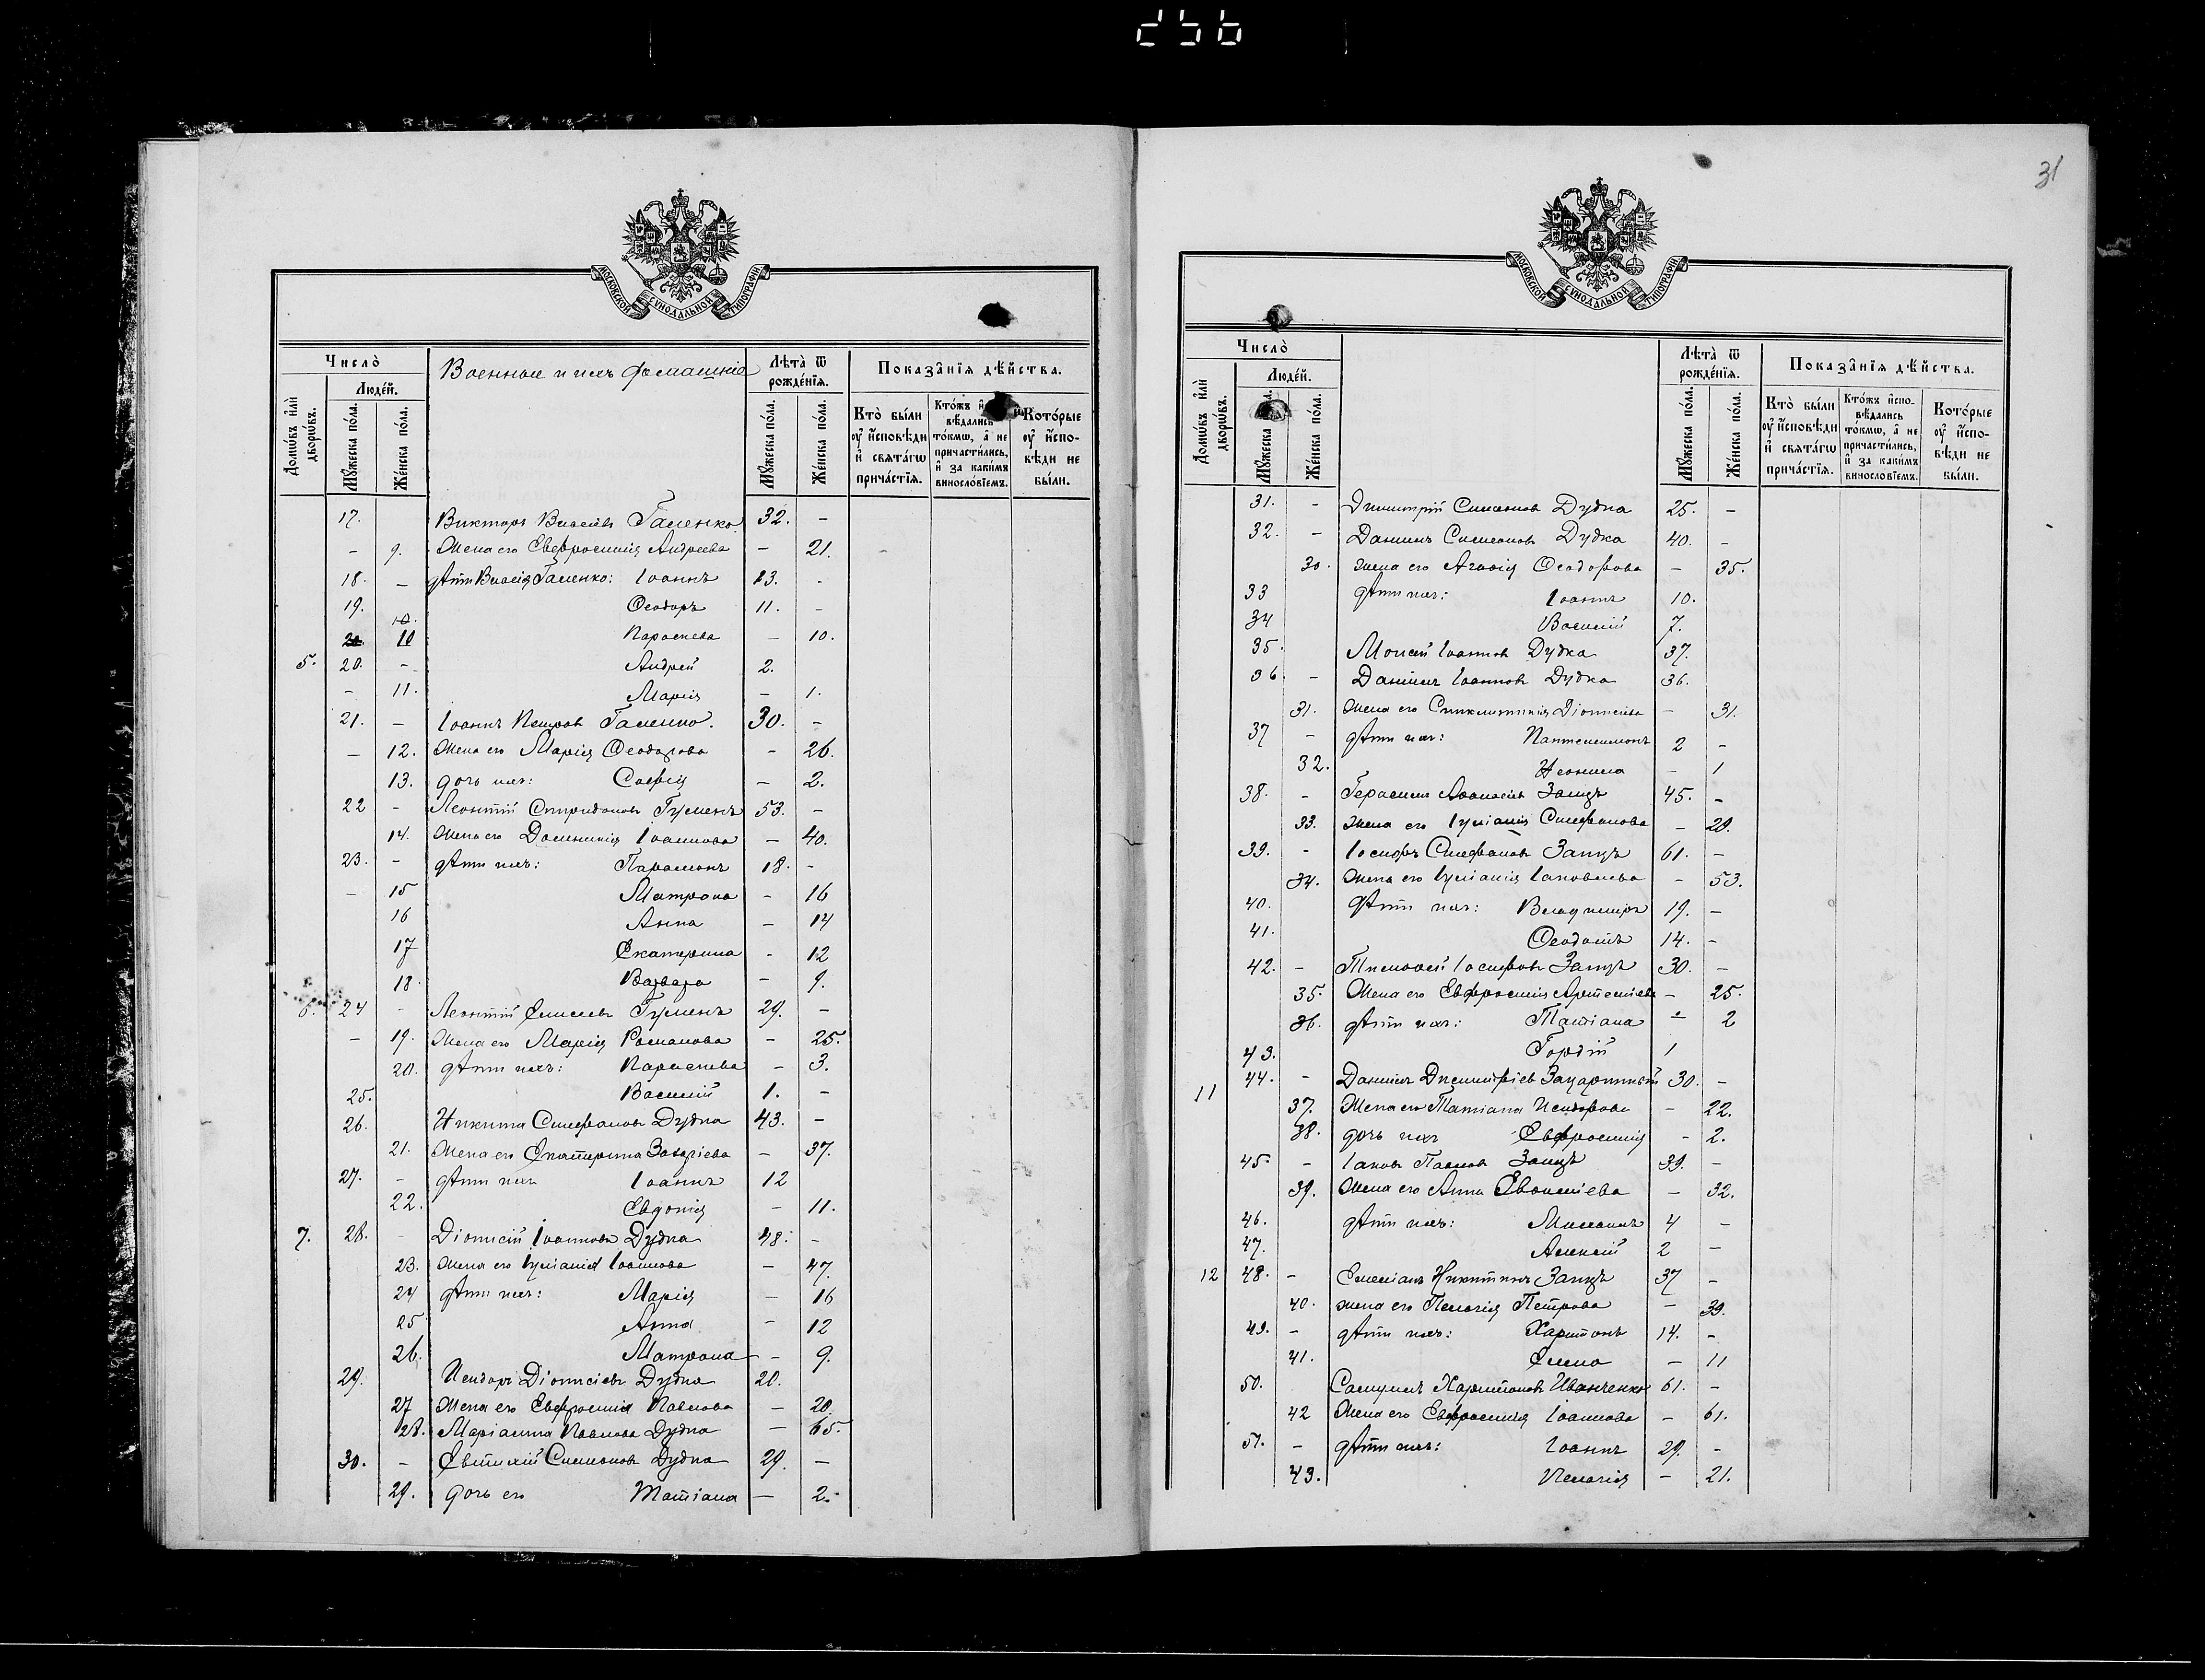 256
31
МОСКОВСКОЙ СѴНОДАЛЬНОЙ ТИПОГРАФІИ
Число̀
Домѡ́въ и҆лѝ дворѡ́въ.
Люде́й.
Мꙋ́жеска по́ла.
Же́нска по́ла.
Военные и ихъ домашніе
Лѣта̀ ѿ рожде́нїя.
Мꙋ́жеска по́ла.
Же́нска по́ла.
Показа̑нїя дѣ́йства.
Кто̀ бы́ли ᲂу҆ и҆сповѣди и҆ свята́гѡ прича́стїя.
Кто́жъ и҆ вѣ́дались то́кмѡ, а҆ не причасти́лись, и҆ за каки́мъ винословїемъ.
Кото́рые ᲂу҆ и҆спо- вѣди не бы́ли.
17. Викторъ Власіевъ Галенко 32. -
- 9. Жена его Евфросинія Андреева - 21.
18. - дѣти Власія Галенко: Іоаннъ 13. -
19. Ѳеодоръ 11. -
10 Параскева - 10.
5. 20. - Андрей 2.
- 11. Марія - 1.
21. - Іоаннъ Петровъ Галенко. 30. -
- 12. Жена его Марія Ѳеодорова - 26.
13. дочь ихъ: Софія - 2.
22 - Леонтій Спиридоновъ Гуменъ 53. -
14. Жена его Домникія Іоаннова - 40.
23. - дѣти ихъ: Парамонъ 18. -
- 15 Матрона - 16
16 Анна - 14
17 Екатерина - 12
18 Варвара - 9.
6. 24 - Леонтій Елисеевъ Гуменъ 29. -
- 19. Жена его Марія Романова - 25.
20. дѣти ихъ: Параскева - 3.
25. Василій 1. -
26. Никита Стефановъ Дудка 43. -
21. Жена его Екатерина Захаріева - 37.
27. - дѣти ихъ Іоаннъ 12
22. Евдокія - 11.
7. 28. - Діонисій Іоанновъ Дудка 48. -
23. Жена его Іуліанія Іоаннова - 47.
24 дѣти ихъ: Марія - 16
25 Анна - 12
26. Матрона - 9.
29. Исидоръ Діонисіевъ Дудка 20.
27 Жена его Евфросинія Павлова - 20.
28. Маріанна Павлова Дудка - 65.
30. - Евтихій Симеоновъ Дудка 29. -
29. дочь его Татіана - 2.
МОСКОВСКОЙ СѴНОДАЛЬНОЙ ТИПОГРАФІИ
Число̀
Домѡ́въ и҆лѝ дворѡ́въ.
Люде́й.
Мꙋ́жеска
Же́нска по́ла.
Лѣта̀ ѿ рожде́нїя.
Мꙋ́жеска по́ла.
Же́нска по́ла.
Показа̑нїя дѣ́йства.
Кто̀ бы́ли ᲂу҆ и҆сповѣди и҆ свята́гѡ прича́стїя.
Кто́жъ и҆спо- вѣ́дались то́кмѡ, а҆ не причасти́лись, и҆ за каки́мъ винословїемъ.
Кото́рые ᲂу҆ и҆спо- вѣди не бы́ли.
31. - Димитрій Симеоновъ Дудка 25. -
32. - Даніилъ Симеоновъ Дудка 40. -
30. Жена его Агафія Ѳеодорова - 35.
33 дѣти ихъ: Іоаннъ 10.
34 Василій 7.
35. Моисей Іоанновъ Дудка 37.
36 - Даніилъ Іоанновъ Дудка 36.
31. Жена его Синклитикія Діонисіева - 31.
37 - дѣти ихъ: Пантелеимонъ 2 -
32. Неонила - 1
38. - Герасимъ Аѳанасіевъ Заицъ 45. -
33. Жена его Іуліанія Стефанова - 29.
39. - Іосифъ Стефановъ Заицъ 61. -
34. Жена его Іуліанія Іаковлева - 53.
40. дѣти ихъ: Владиміръ 19. -
41. Ѳеодотъ 14. -
42. - Тимоѳей Іосифовъ Заицъ 30. -
35. Жена его Евфросинія Артеміева - 25.
36. дѣти ихъ: Татіана - 2
43. Гордій 1
11 44. - Даніилъ Димитріевъ 30. -
37. Жена его Татіана Исидорова - 22.
38. дочь ихъ Евфросинія - 2.
45. - Іаковъ Павловъ Заицъ 39. -
39. Жена его Анна Евѳиміева - 32.
46. дѣти ихъ: 4 -
47. Алексій 2 -
12 48. - Емеліанъ Никитинъ Заицъ 37 -
40. Жена его Пелагія Петрова - 39.
49. - дѣти ихъ: Харитонъ 14. -
41. Елена - 11
50. Самуилъ Харитоновъ Иванченко 61. -
42 Жена его Евфросинія Іоаннова - 61.
51. - дѣти ихъ: Іоаннъ 29. -
43. Пелагія - 21.